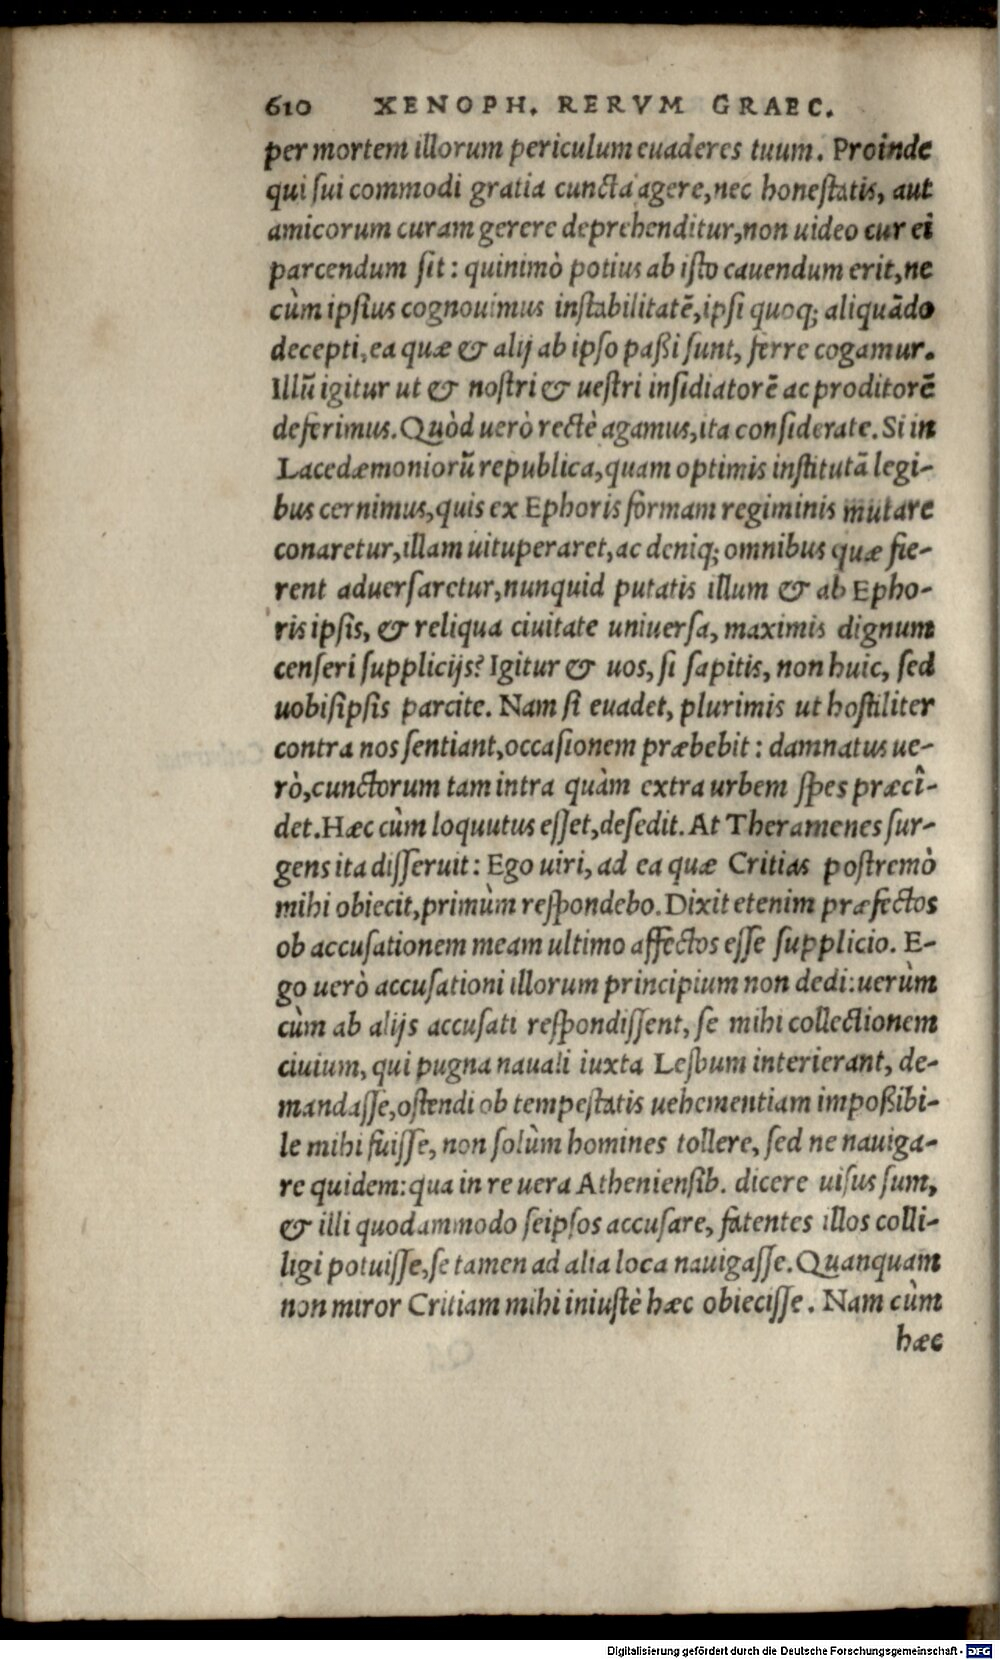 610 XENOPH. RERVM GRAEC.
per mortem illorum periculum euaderes tuum. Proinde
qui sui commodi gratia cuncta agere, nec honestatis, aut
amicorum curam gerere deprehenditur, non uideo cur ei
parcendum sit: quinimò potius ab isto cauendum erit, ne
cùm ipsius cognouimus instabilitatē, ipsi quoq; aliquādo
decepti, ea quæ & alij ab ipso paßi sunt, ferre cogamur.
Illū igitur ut & nostri & uestri insidiatorē ac proditorē
deferimus. Quòd uerò rectè agamus, ita considerate. Si in
Lacedæmoniorū republica, quam optimis institutā legi-
bus cernimus, quis ex Ephoris formam regiminis mutare
conaretur, illam uituperaret, ac deniq; omnibus quæ fie-
rent aduersaretur, nunquid putatis illum & ab Epho-
ris ipsis, & reliqua ciuitate uniuersa, maximis dignum
censeri supplicijs? Igitur & uos, si sapitis, non huic, sed
uobisipsis parcite. Nam si euadet, plurimis ut hostiliter
contra nos sentiant, occasionem præbebit: damnatus ue-
rò, cunctorum tam intra quàm extra urbem spes præcî-
det. Hæc cùm loquutus esset, desedit. At Theramenes sur-
gens ita disseruit: Ego uiri, ad ea quæ Critias postremò
mihi obiecit, primùm respondebo. Dixit etenim præfectos
ob accusationem meam ultimo affectos esse supplicio. E-
go uerò accusationi illorum principium non dedi: uerùm
cùm ab alijs accusati respondissent, se mihi collectionem
ciuium, qui pugna nauali iuxta Lesbum interierant, de-
mandasse, ostendi ob tempestatis uehementiam impoßibi-
le mihi fuisse, non solùm homines tollere, sed ne nauiga-
re quidem: qua in re uera Atheniensib. dicere uisus sum,
& illi quodammodo seipsos accusare, fatentes illos colli-
ligi potuisse, se tamen ad alia loca nauigasse. Quanquam
non miror Critiam mihi iniustè hæc obiecisse. Nam cùm
hæc
Digitalisierung gefördert durch die Deutsche Forschungsgemeinschaft - DFG